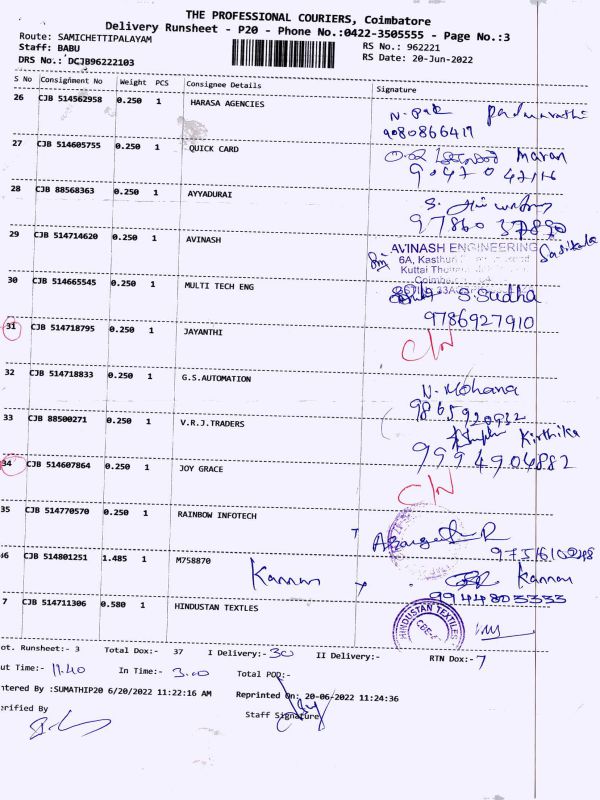 THE PROFESSIONAL COURIERS, Coimbatore
Delivery Runsheet - P20 - Phone No.:0422-3505555 - Page No.:3
Route: SAMICHETTIPALAYAM
Staff: BABU
DRS No.: DCJB96222103
RS No.: 962221
RS Date: 20-Jun-2022
S No Consignment No Weight PCS Consignee Details Signature
26 CJB 514562958 0.250 1 HARASA AGENCIES
9080866417
27 CJB 514605755 0.250 1 QUICK CARD Maran
28 CJB 88568363 0.250 1 AYYADURAI
29 CJB 514714620 0.250 1 AVINASH
AVINASH ENGINEERING Sasikala
6A, Kasthuri
30 CJB 514665545 0.250 1 MULTI TECH ENG S.Sudha
9786927910
31 CJB 514718795 0.250 1 JAYANTHI C/N
32 CJB 514718833 0.250 1 G.S.AUTOMATION N. Mohana
9865920932
33 CJB 88500271 0.250 1 V.R.J.TRADERS Kirthika
9994904882
34 CJB 514607864 0.250 1 JOY GRACE C/N
35 CJB 514770570 0.250 1 RAINBOW INFOTECH
46 CJB 514801251 1.485 1 M758870 Kannan Kannan
9944803333
7 CJB 514711306 0.580 1 HINDUSTAN TEXTLES
HINDUSTAN TEXTILES
ot. Runsheet:- 3 Total Dox:- 37 I Delivery:- 30 II Delivery:- RTN Dox:- 7
ut Time:- 11.40 In Time:- 3.00 Total POD:-
ntered By :SUMATHIP20 6/20/2022 11:22:16 AM Reprinted On: 20-06-2022 11:24:36
erified By Staff Signature